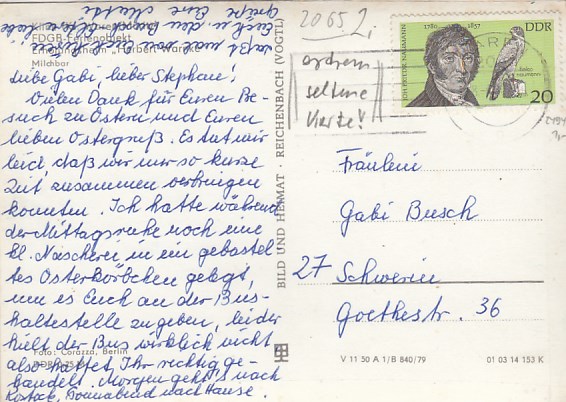 Liebe Gabi, lieber Stephan!
Vielen Dank für Euren Be-
such zu Ostern und Euren
lieben Ostergruß. Es tut mir
leid, daß wir nur so kurze
Zeit zusammen verbringen
konnten. Ich hatte während
der Mittagsruhe noch eine
kl. Nascherei in ein gebastel-
tes Osterkörbchen gelegt,
um es Euch an der Bus-
haltestelle zu geben, leider
hielt der Bus wirklich nicht
also hattet Ihr richtig ge-
handelt. Morgen geht's nach
Rostock, Sonnabend nach Hause.
Euch in den
Grüße Eure
FDGB-
Milchbar
Foto: Corazza, Berlin
BILD UND HEIMAT · REICHENBACH (VOGTL)
2065
seltene
Karte!
JOH. FRIEDR. NAUMANN
1780 1857
DDR
20
Fräulein
Gabi Busch
27 Schwerin
Goethestr. 36
V 11 50 A 1/B 840/79
01 03 14 153 K